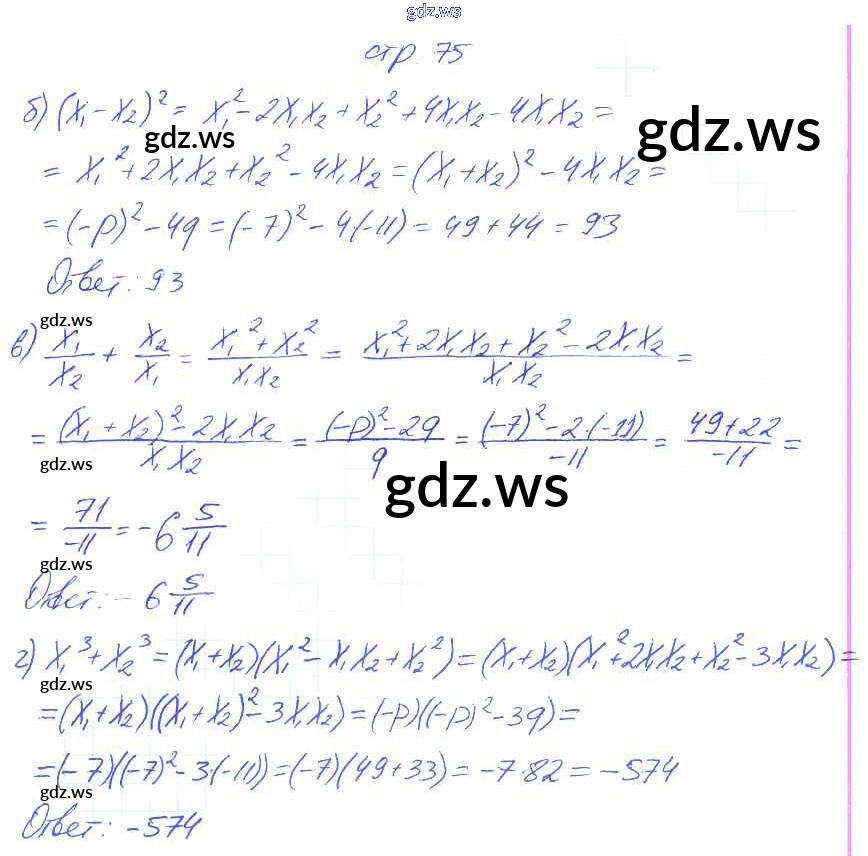 gdz.ws
стр. 75
б) (x₁ - x₂)² = x₁² - 2x₁x₂ + x₂² + 4x₁x₂ - 4x₁x₂ =
gdz.ws
gdz.ws
= x₁² + 2x₁x₂ + x₂² - 4x₁x₂ = (x₁ + x₂)² - 4x₁x₂ =
= (-p)² - 4q = (-7)² - 4(-11) = 49 + 44 = 93
Ответ: 93
gdz.ws
в) x₁/x₂ + x₂/x₁ = (x₁² + x₂²)/(x₁x₂) = (x₁² + 2x₁x₂ + x₂² - 2x₁x₂)/(x₁x₂) =
= ((x₁ + x₂)² - 2x₁x₂)/(x₁x₂) = ((-p)² - 2q)/q = ((-7)² - 2·(-11))/(-11) = (49 + 22)/(-11) =
gdz.ws
gdz.ws
= 71/(-11) = -6 5/11
gdz.ws
Ответ: - 6 5/11
г) x₁³ + x₂³ = (x₁ + x₂)(x₁² - x₁x₂ + x₂²) = (x₁ + x₂)(x₁² + 2x₁x₂ + x₂² - 3x₁x₂) =
gdz.ws
= (x₁ + x₂)((x₁ + x₂)² - 3x₁x₂) = (-p)((-p)² - 3q) =
= (-7)((-7)² - 3(-11)) = (-7)(49 + 33) = -7·82 = -574
Ответ: -574